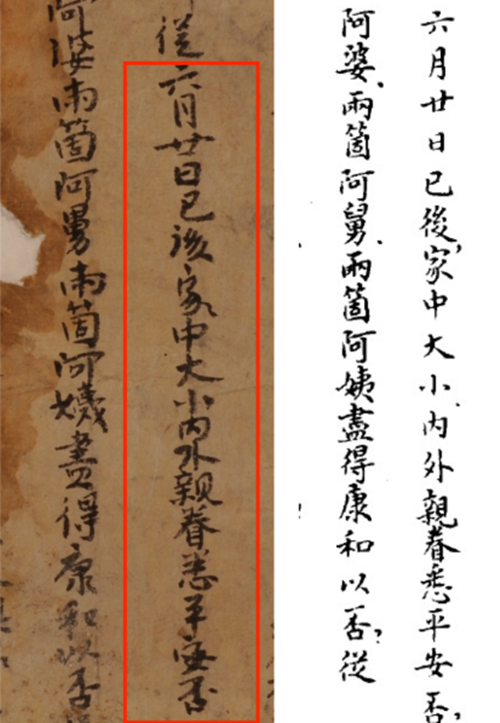 六月廿日已後，家中大小、内外親眷悉平安否？
阿婆、兩箇阿舅、兩箇阿姨盡得康和以否？從
從六月廿日已後家中大小内外親眷悉平安否
阿婆兩箇阿舅兩箇阿盡得康和以否